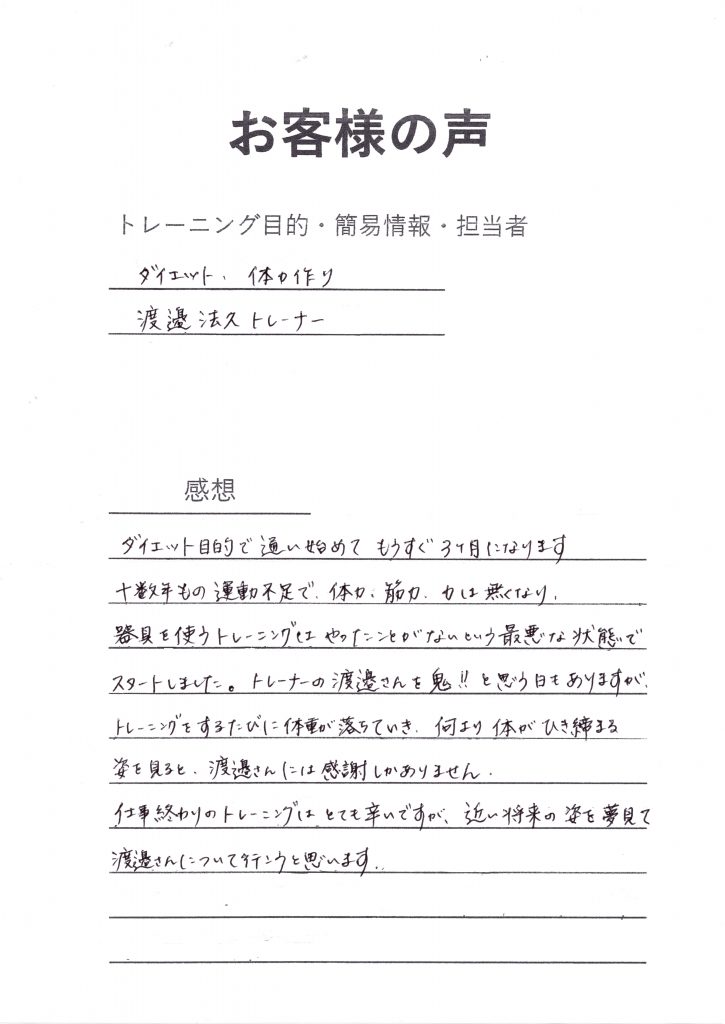 お客様の声
トレーニング目的・簡易情報・担当者
ダイエット、体力作り
渡邉法久トレーナー
感想
ダイエット目的で通い始めてもうすぐ3ヶ月になります
十数年もの運動不足で、体力、筋力、力は無くなり、
器具を使うトレーニングはやったことがないという最悪な状態で
スタートしました。トレーナーの渡邉さんを鬼!!と思う日もありますが、
トレーニングをするたびに体重が落ちていき、何より体がひき締まる
姿を見ると、渡邉さんには感謝しかありません。
仕事終わりのトレーニングはとても辛いですが、近い将来の姿を夢見て
渡邉さんについて行こうと思います。